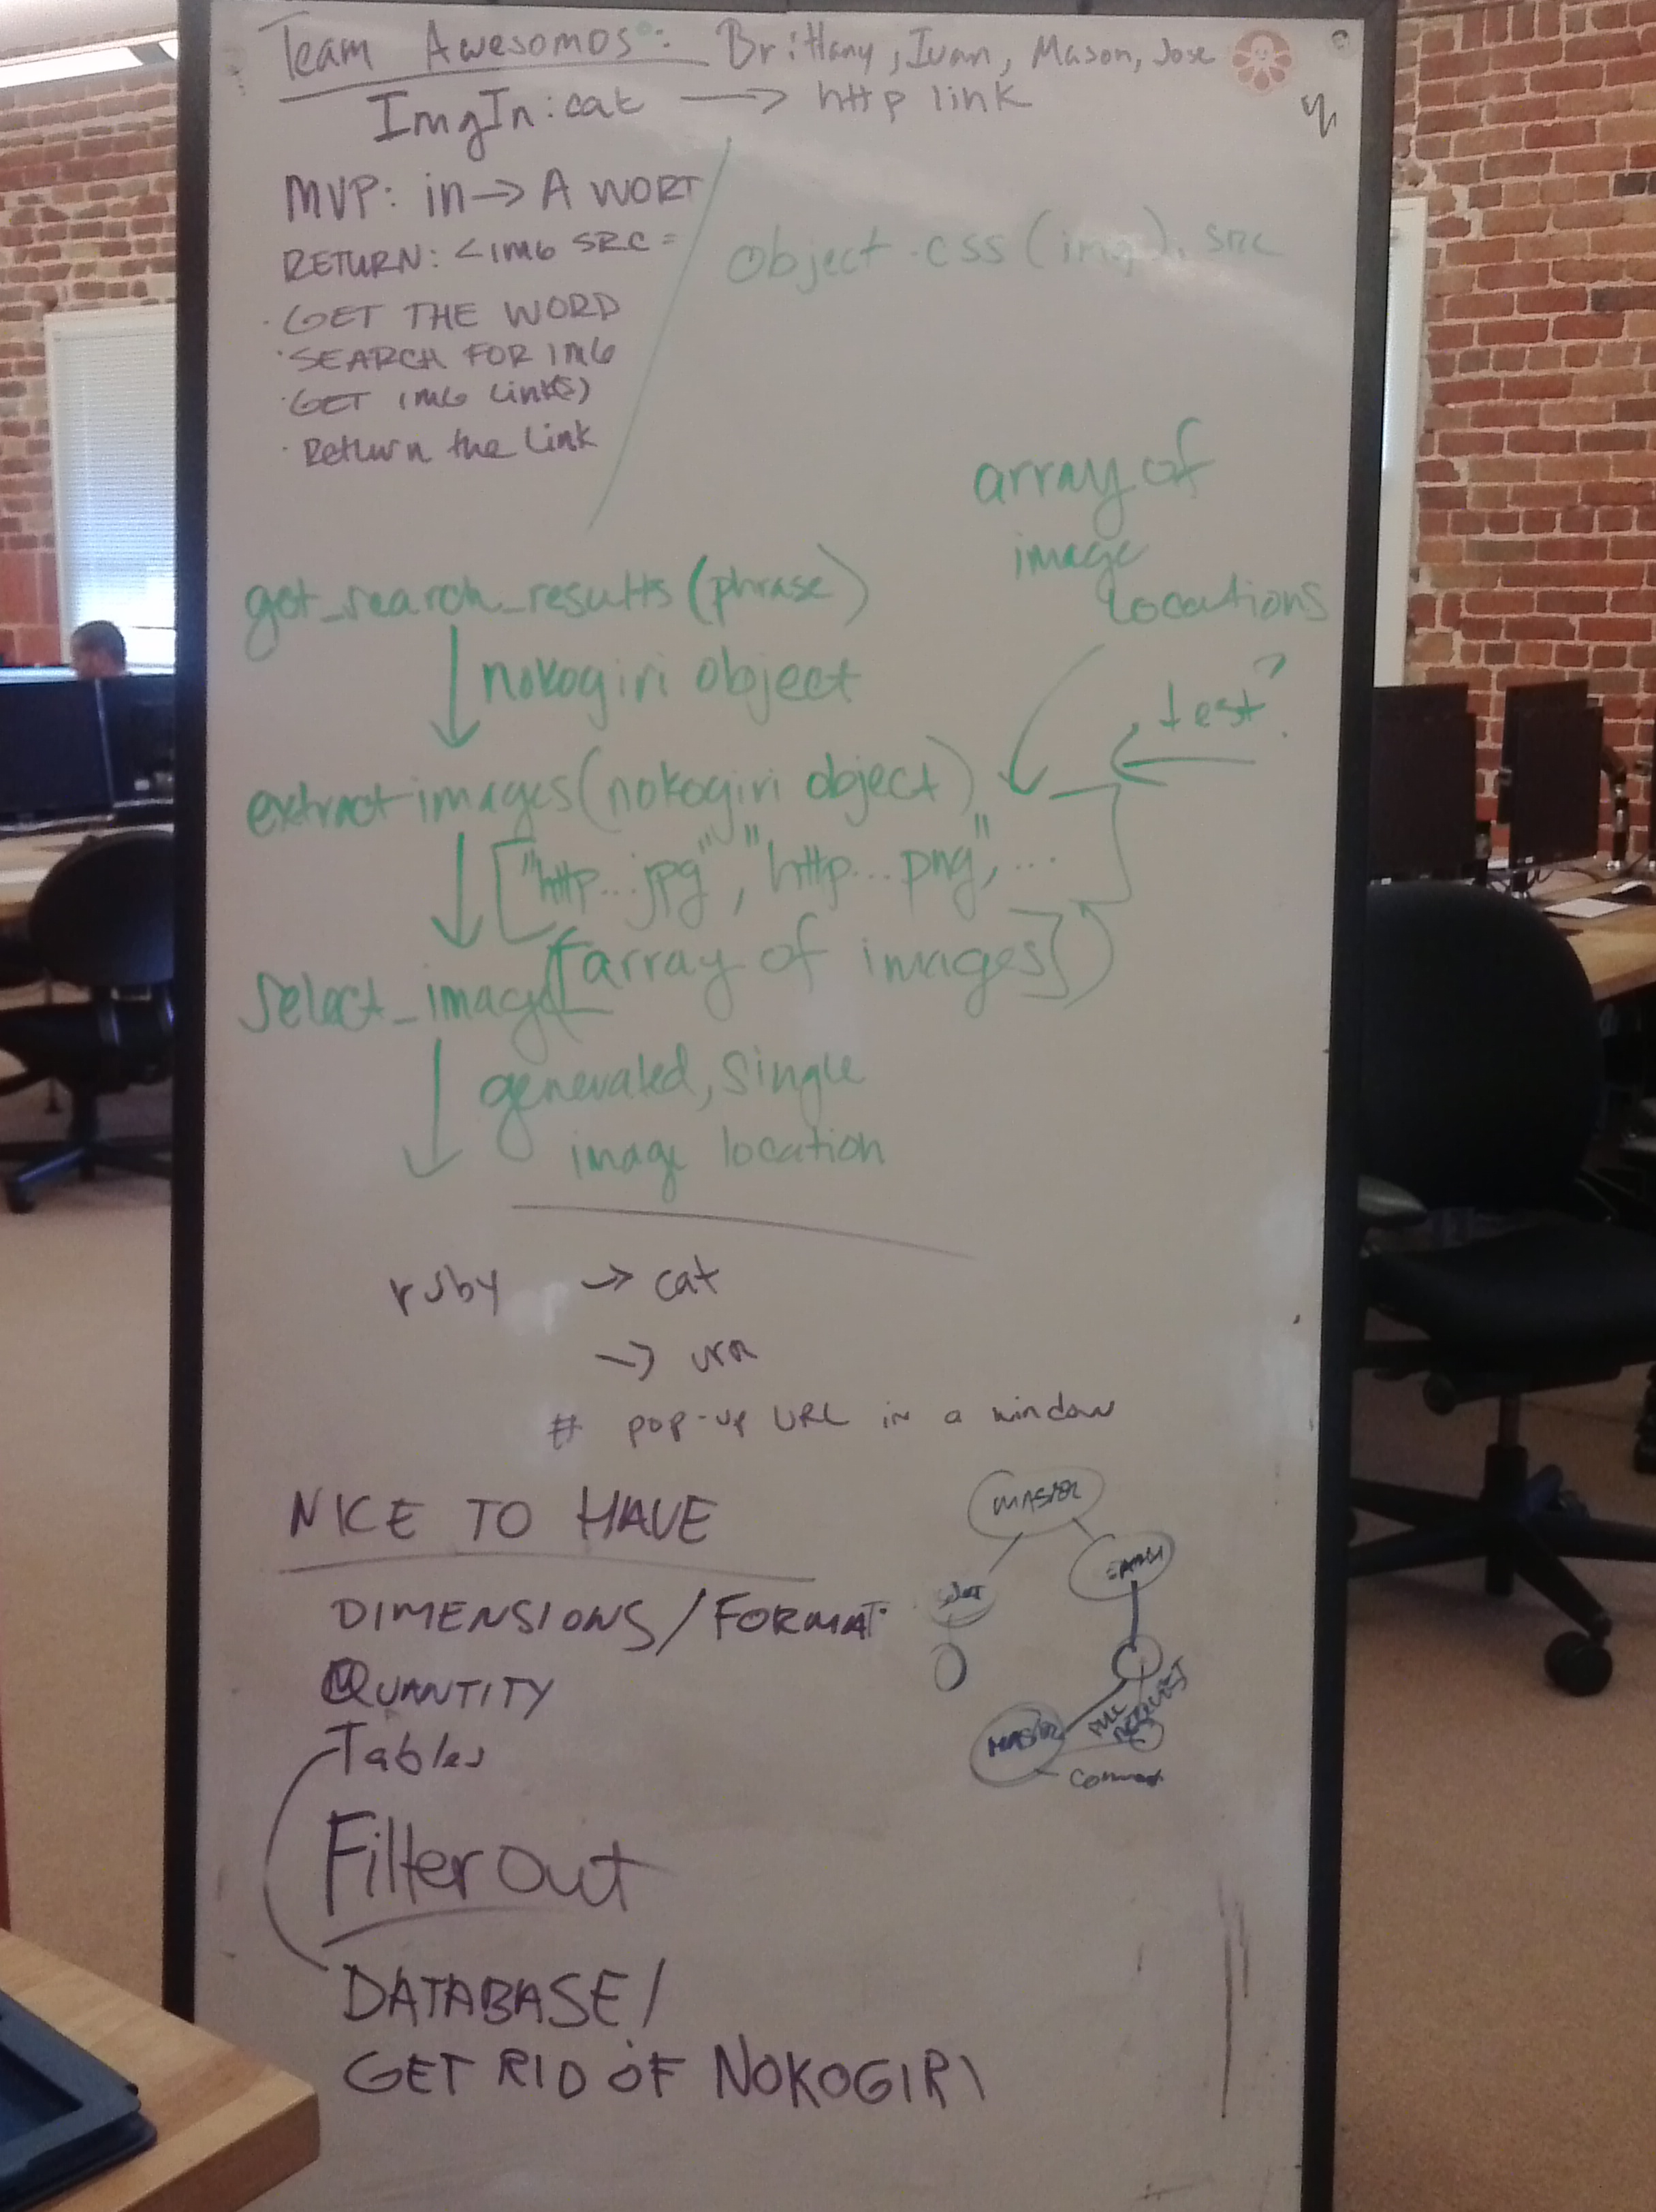 Team Awesomos: Brittany, Ivan, Mason, Jose
ImgIn: cat → http link
MVP: in → A WORT
RETURN: <IMG SRC =
· GET THE WORD
· SEARCH FOR IMG
· GET IMG Link(s)
· Return the Link
object.css(img).src
array of
image
locations
get_search_results(phrase)
nokogiri object
test?
extract images(nokogiri object)
["http...jpg", "http...png", ...
select_image([array of images])
generated, single
image location
ruby → cat
→
# pop-up URL in a window
NICE TO HAVE
DIMENSIONS/FORMAT
QUANTITY
Tables
Filter out
DATABASE/
GET RID OF NOKOGIRI
MASTER
MASTER
PULL
REQUEST